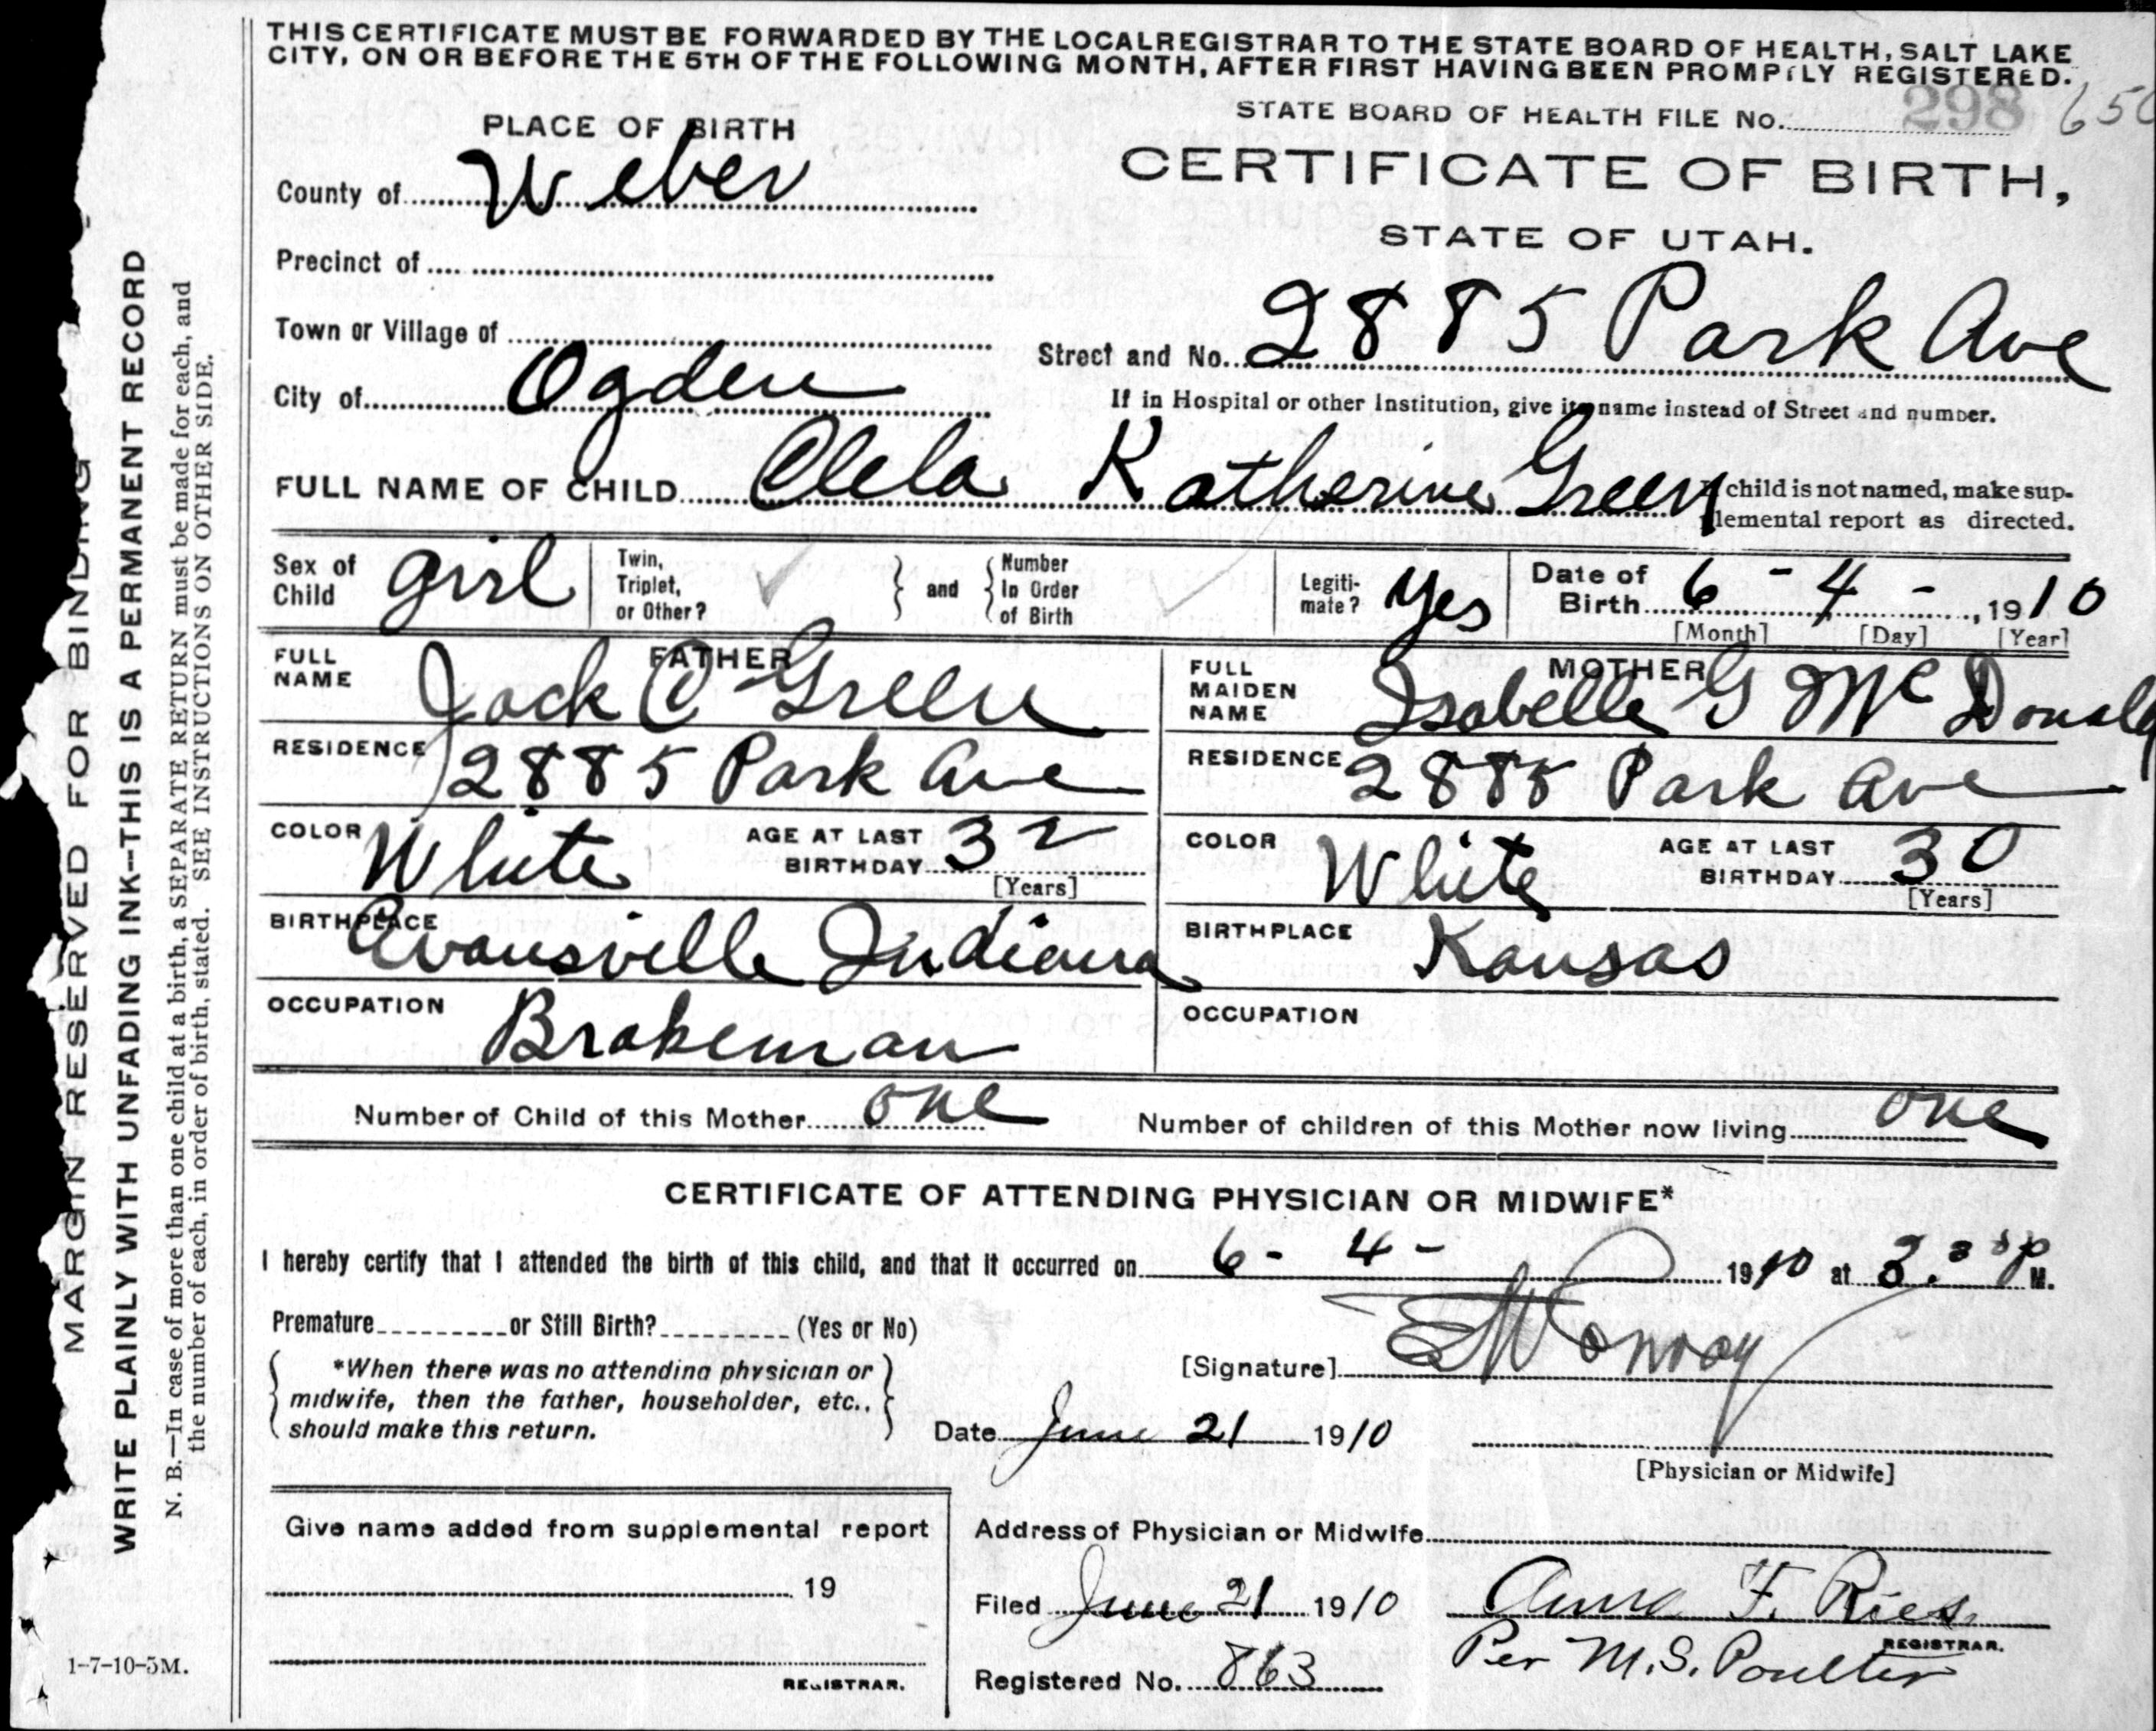 THIS CERTIFICATE MUST BE FORWARDED BY THE LOCAL REGISTRAR TO THE STATE BOARD OF HEALTH, SALT LAKE
CITY, ON OR BEFORE THE 5TH OF THE FOLLOWING MONTH, AFTER FIRST HAVING BEEN PROMPTLY REGISTERED.
STATE BOARD OF HEALTH FILE No. 298 650
PLACE OF BIRTH
CERTIFICATE OF BIRTH,
County of Weber
STATE OF UTAH.
Precinct of
Town or Village of
Street and No. 2885 Park Ave
City of Ogden
If in Hospital or other Institution, give its name instead of Street and number.
FULL NAME OF CHILD Clela Katherine Green
child is not named, make sup-
lemental report as directed.
Sex of Child girl
Twin, Triplet, or Other?
and
Number In Order of Birth
Legiti-mate? Yes
Date of Birth 6 - 4 - , 1910
[Month] [Day] [Year]
FATHER
FULL NAME Jack C Green
MOTHER
FULL MAIDEN NAME Isabelle G McDonald
RESIDENCE 2885 Park Ave
RESIDENCE 2885 Park Ave
COLOR White AGE AT LAST BIRTHDAY 32 [Years]
COLOR White AGE AT LAST BIRTHDAY 30 [Years]
BIRTHPLACE Evansville Indiana
BIRTHPLACE Kansas
OCCUPATION Brakeman
OCCUPATION
Number of Child of this Mother one
Number of children of this Mother now living one
CERTIFICATE OF ATTENDING PHYSICIAN OR MIDWIFE*
I hereby certify that I attended the birth of this child, and that it occurred on 6 - 4 - 1910 at 3. P M.
Premature or Still Birth? (Yes or No)
*When there was no attending physician or
midwife, then the father, householder, etc.,
should make this return.
[Signature] Conroy
Date June 21 1910
[Physician or Midwife]
Give name added from supplemental report
19
REGISTRAR.
Address of Physician or Midwife
Filed June 21 1910 Anna F. Ries
REGISTRAR.
Per M. S. Poulter
Registered No. 863
MARGIN RESERVED FOR BINDING
WRITE PLAINLY WITH UNFADING INK--THIS IS A PERMANENT RECORD
N. B.—In case of more than one child at a birth, a SEPARATE RETURN must be made for each, and
the number of each, in order of birth, stated. SEE INSTRUCTIONS ON OTHER SIDE.
1-7-10-5M.